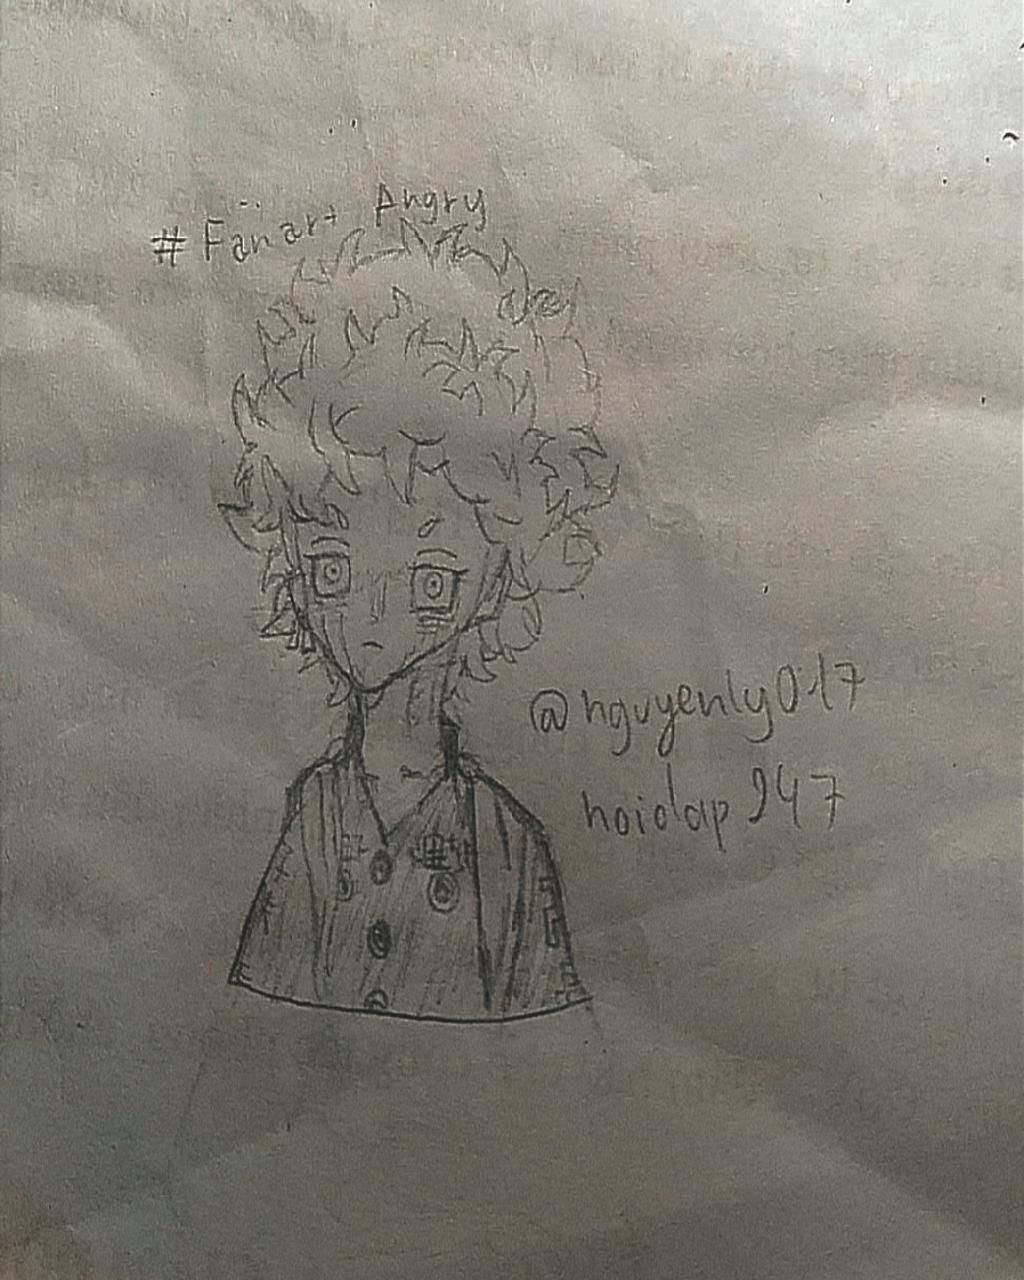 #Fanart Angry
@nguyenly017
hoidap247